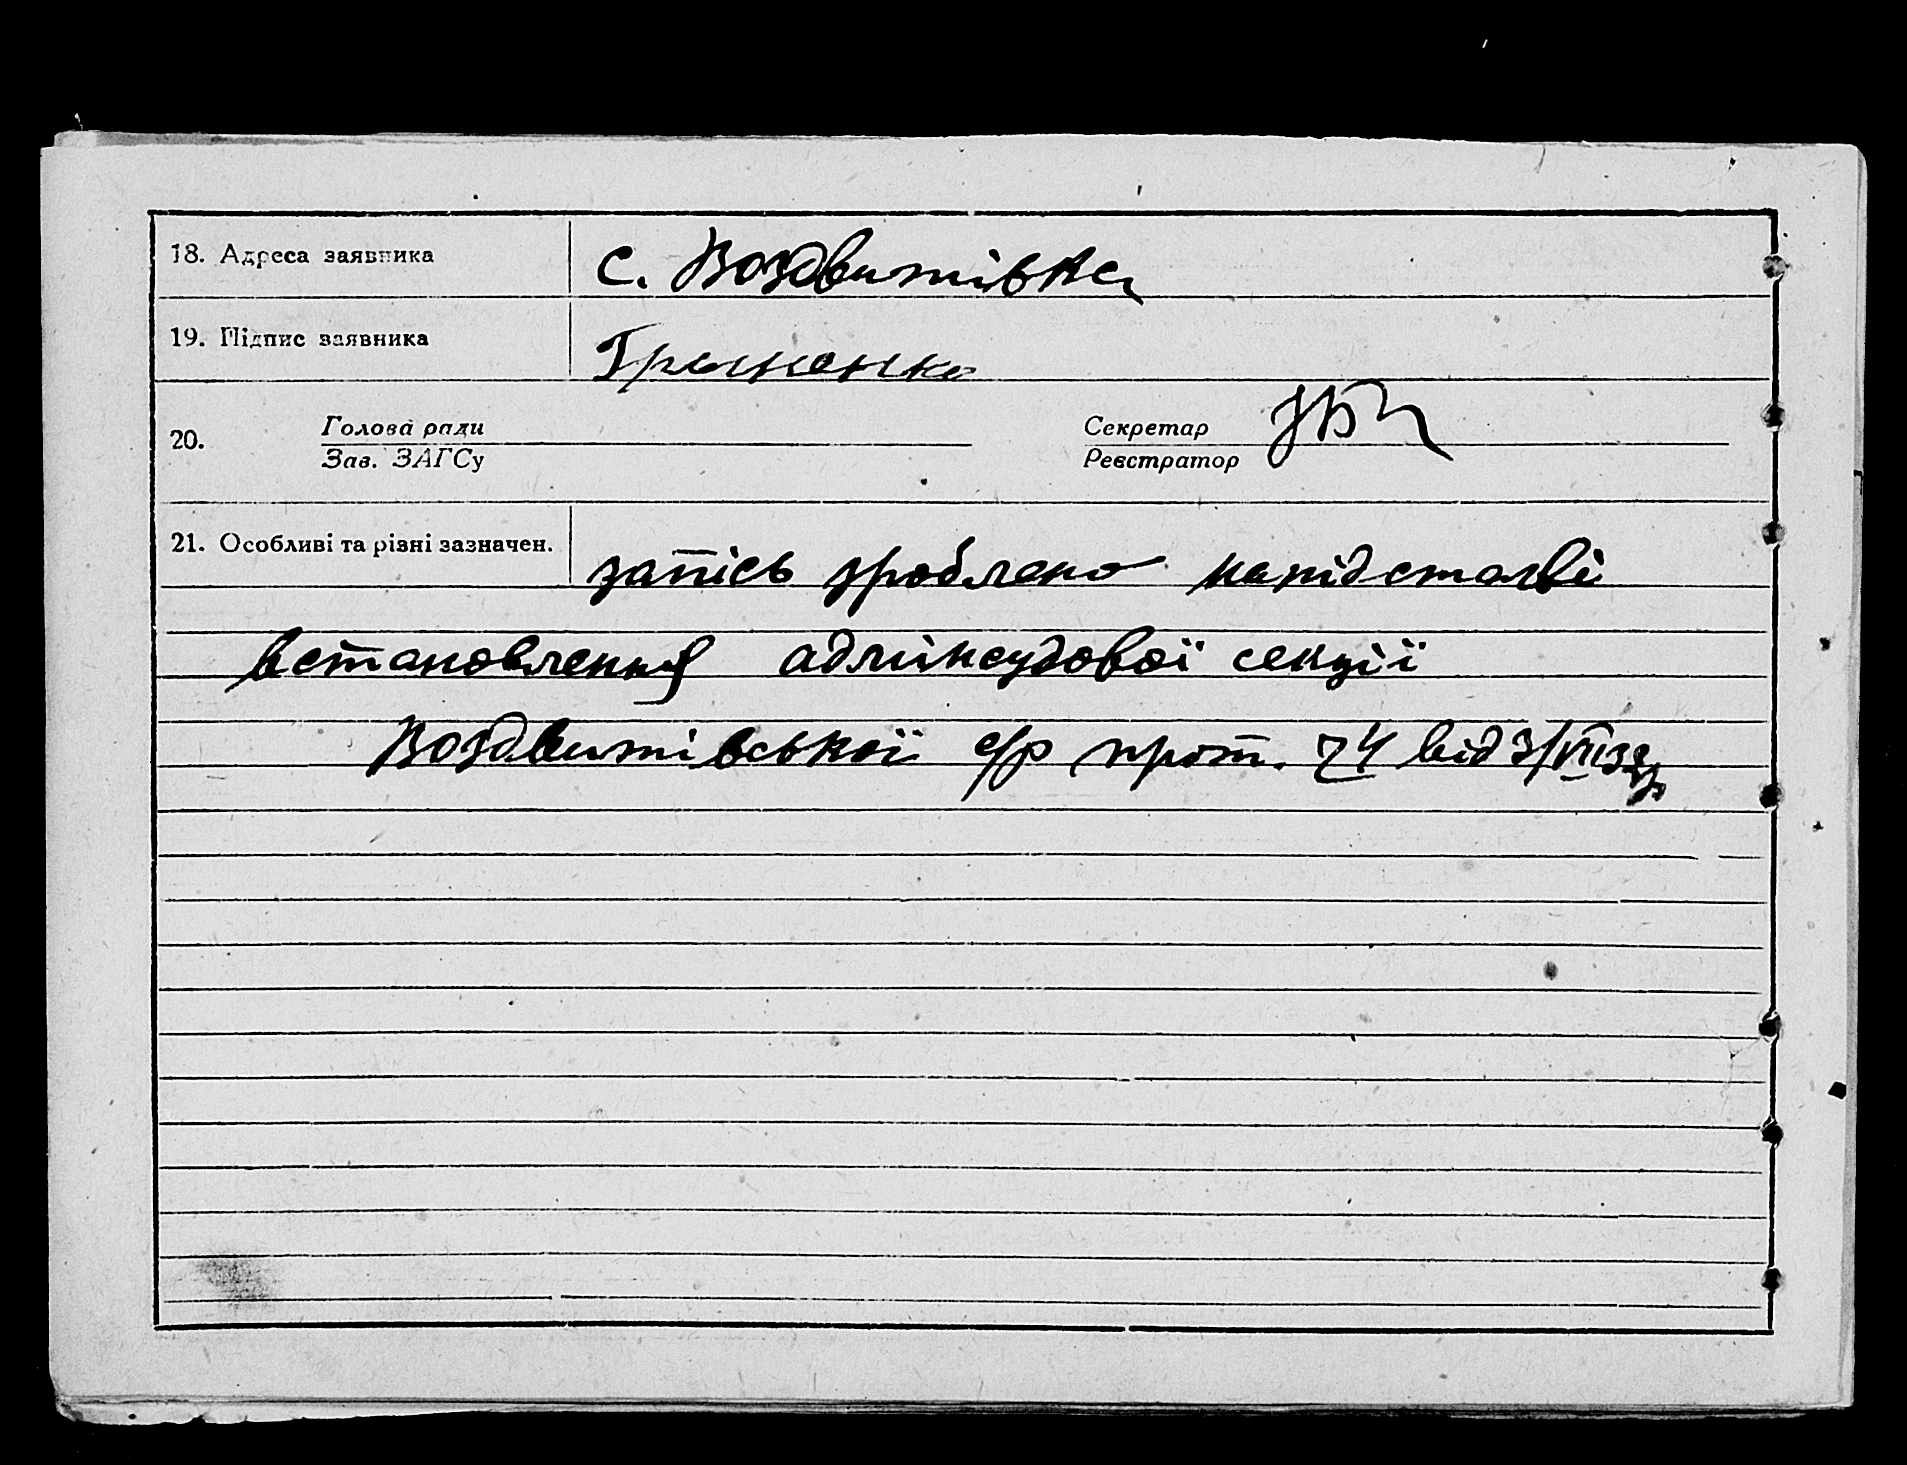 18. Адреса заявника с. Воздвитівка
19. Підпис заявника
20. Голова ради Секретар
Зав. ЗАГСу Реєстратор
21. Особливі та різні зазначен. запісь зроблено напідставі
встановлення адмінсудової секції
Воздвитівської с/р прот. 24 від 3/VII